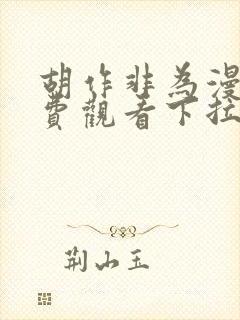 胡作非為漫
費觀看下拉
荆山玉